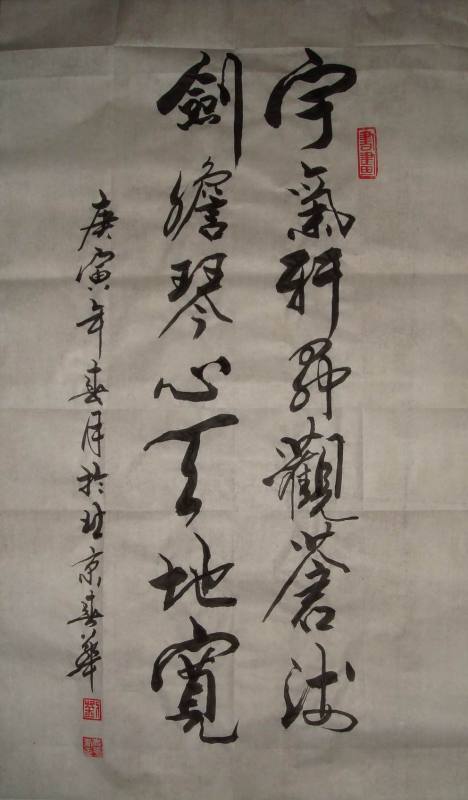 書畫
宇氣軒昂觀蒼海
劍膽琴心天地寬
庚寅年春月於北京春華
劉